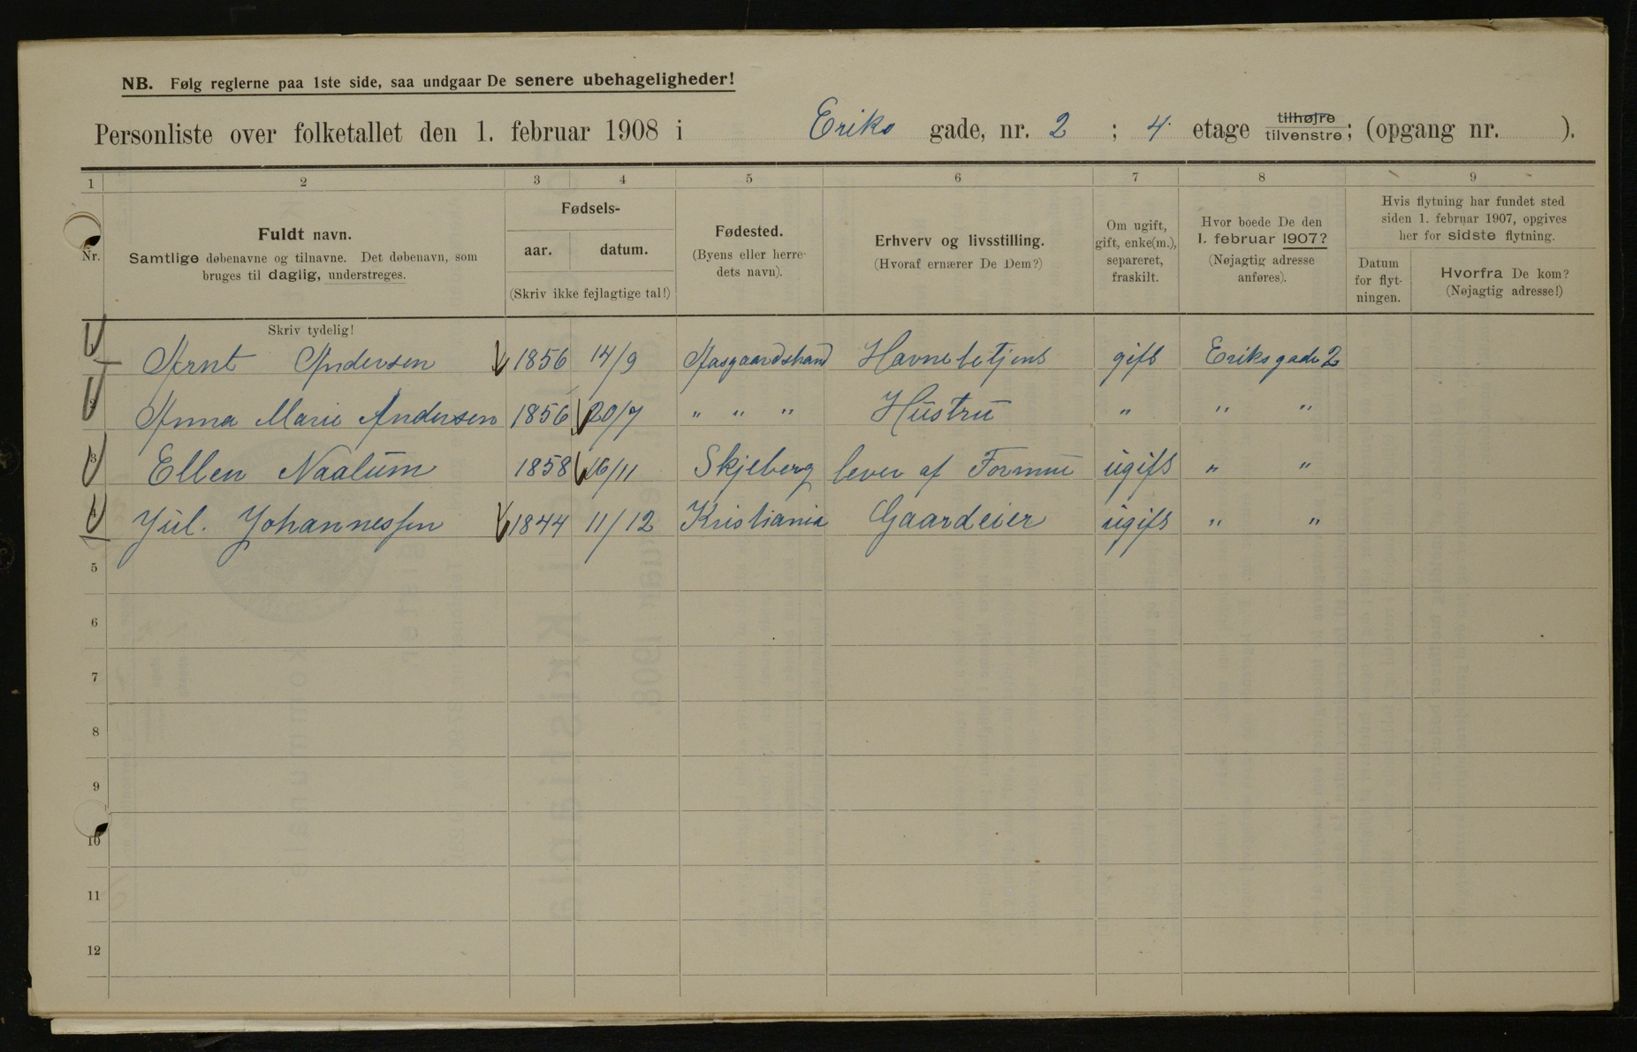 NB. Følg reglerne paa 1ste side, saa undgaar De senere ubehageligheder!
Personliste over folketallet den 1. februar 1908 i Eriks gade, nr. 2 ; 4. etage tilhøjre tilvenstre; (opgang nr. ).
1 2 3 4 5 6 7 8 9
Nr.
Fuldt navn.
Samtlige døbenavne og tilnavne. Det døbenavn, som
bruges til daglig, understreges.
Fødsels-
aar. datum.
(Skriv ikke fejlagtige tal!)
Fødested.
(Byens eller herre-
dets navn).
Erhverv og livsstilling.
(Hvoraf ernærer De Dem?)
Om ugift,
gift, enke(m.),
separeret,
fraskilt.
Hvor boede De den
1. februar 1907?
(Nøjagtig adresse
anføres).
Hvis flytning har fundet sted
siden 1. februar 1907, opgives
her for sidste flytning.
Datum
for flyt-
ningen.
Hvorfra De kom?
(Nøjagtig adresse!)
Skriv tydelig!
Arnt Andersen 1856 14/9 Aasgaardstrand Havnebetjent gift Eriksgade 2
2 Anna Marie Andersen 1856 20/7 " " " Hustru " " "
3 Ellen Naalum 1858 16/11 Skjeberg lever af Formue ugift " "
4 Jul. Johannessen 1844 11/12 Kristiania Gaardeier ugift " "
5
6
7
8
9
10
11
12